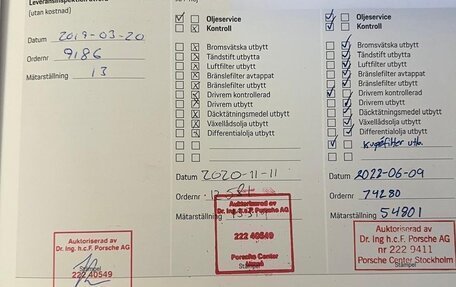 Leveransinspektion utförd
(utan kostnad)
Datum 2019-03-20
Ordernr 9186
Mätarställning 13
Auktoriserad av
Dr. Ing. h.c.F. Porsche AG
222 40549
Stämpel
Oljeservice
Kontroll
Bromsvätska utbytt
Tändstift utbytta
Luftfilter utbytt
Bränslefilter avtappat
Bränslefilter utbytt
Drivrem kontrollerad
Drivrem utbytt
Däcktätningsmedel utbytt
Växellådsolja utbytt
Differentialolja utbytt
Datum 2020-11-11
Ordernr
Mätarställning
Auktoriserad av
Dr. Ing. h.c.F. Porsche AG
222 40549
Porsche Center
Stämpel
Oljeservice
Kontroll
Bromsvätska utbytt
Tändstift utbytta
Luftfilter utbytt
Bränslefilter avtappat
Bränslefilter utbytt
Drivrem kontrollerad
Drivrem utbytt
Däcktätningsmedel utbytt
Växellådsolja utbytt
Differentialolja utbytt
Kupéfilter utb
Datum 2022-06-09
Ordernr 74280
Mätarställning 54801
Auktoriserad av
Dr. Ing h.c.F. Porsche AG
nr 222 9411
Porsche Center Stockholm
Stämpel